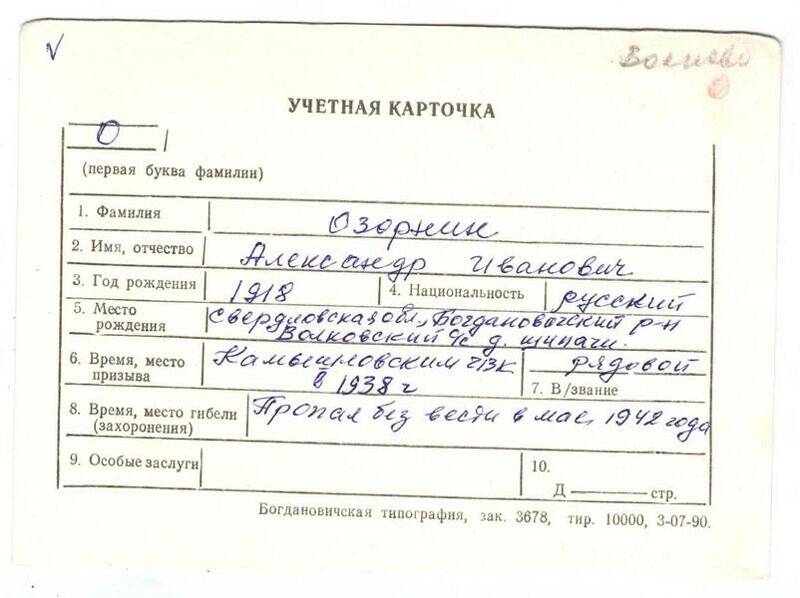 √
УЧЕТНАЯ КАРТОЧКА
О
(первая буква фамилии)
1. Фамилия Озорнин
2. Имя, отчество Александр Иванович
3. Год рождения 1918 4. Национальность русский
5. Место рождения Свердловская обл., Богдановичский р-н
Волковский с/с д. Щипачи.
6. Время, место призыва Камышловским РВК
в 1938 г
рядовой
7. В/звание
8. Время, место гибели (захоронения) Пропал без вести в мае 1942 года
9. Особые заслуги
10.
Д — стр.
Богдановичская типография, зак. 3678, тир. 10000, 3-07-90.